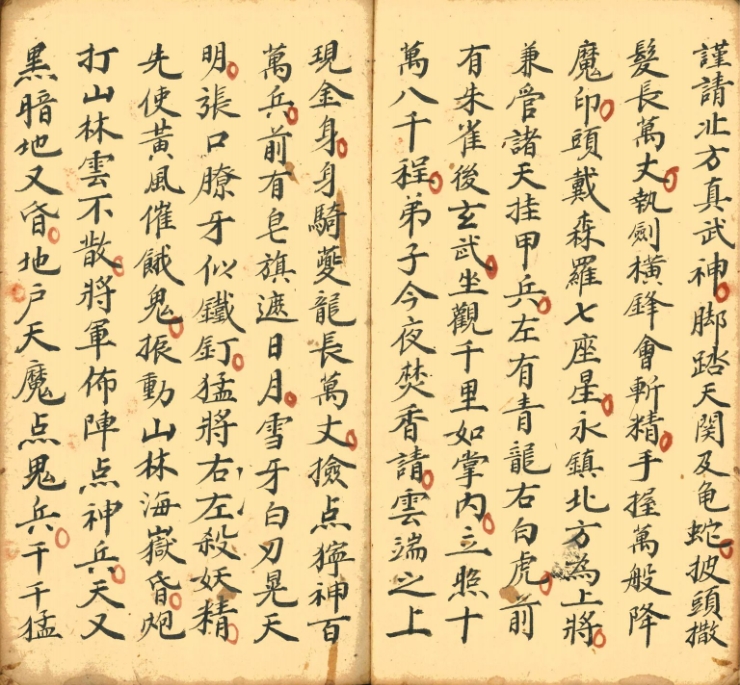 謹請北方真武神脚踏天関及龟蛇披頭撒
髮長萬丈執劍橫鋒會斬精手握萬般降
魔印頭戴森羅七座星永鎮北方為上將
兼管諸天挂甲兵左有青龍右白虎前
有朱雀後玄武坐觀千里如掌內立照十
萬八千程弟子今夜焚香請雲端之上
現金身身騎夔龍長萬丈撿点獰神百
萬兵前有皂旗遮日月雪牙白刃晃天
明張口獠牙似鐵釘猛將右左殺妖精
先使黃風催餓鬼振動山林海嶽昏炮
打山林雲不散將軍佈陣点神兵天又
黑暗地又昏地户天魔点鬼兵千千猛